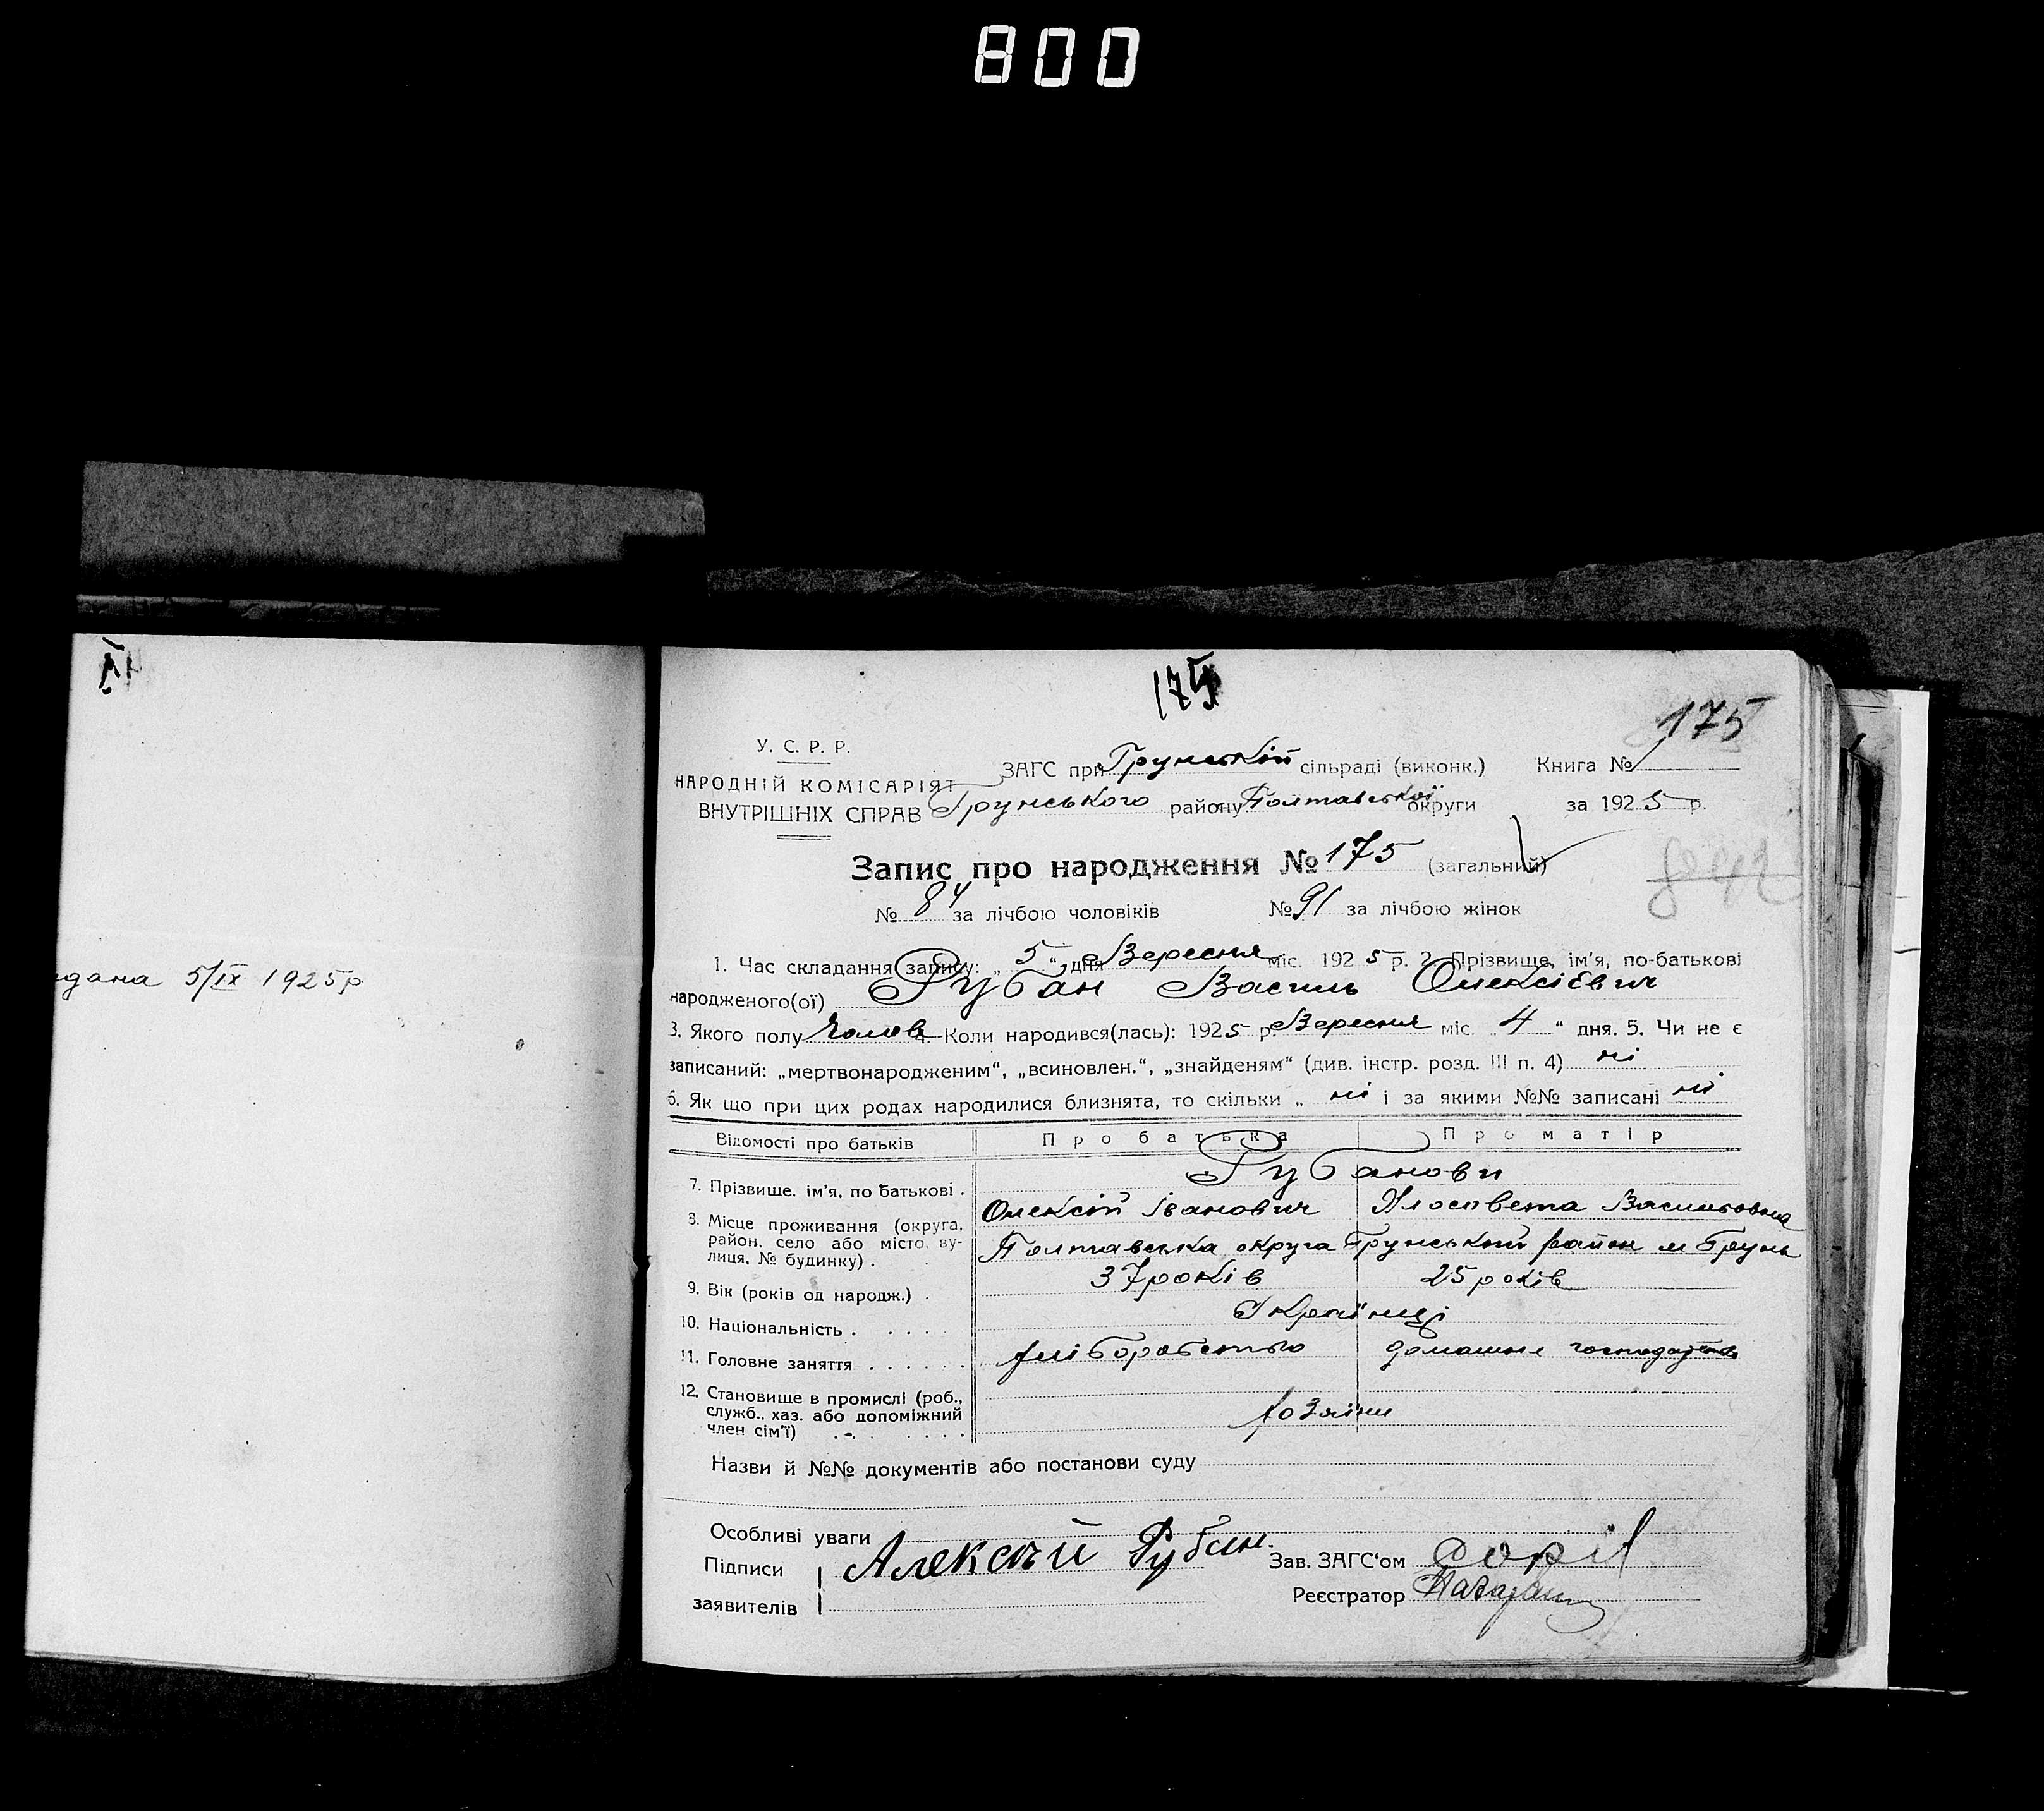 800
175
175
У. С. Р. Р.
НАРОДНІЙ КОМІСАРІЯТ
ВНУТРІШНІХ СПРАВ
ЗАГС при Грунській сільраді (виконк.) Книга №
Грунського району Полтавської округи за 1925 р.
Запис про народження № 175 (загальний)
№ 84 за лічбою чоловіків № 91 за лічбою жінок
дана 5/IX 1925 р
1. Час складання запису: „ 5 “ дня Вересня міс. 1925 р. 2. Прізвище, ім'я, по-батькові
народженого(ої) Рубан Василь Олексієвич
3. Якого полу Чолов 4. Коли народився(лась): 1925 р. Вересня міс. „ 4 “ дня. 5. Чи не є
записаний: „мертвонародженим“, „всиновлен.“, „знайденям“ (див. інстр. розд. III п. 4) ні
6. Як що при цих родах народилися близнята, то скільки „ ні і за якими №№ записані ні
Відомості про батьків Про батька Про матір
Рубанови
7. Прізвище, ім'я, по батькові . Олексій Іванович Васильовна
8. Місце проживання (округа,
район, село або місто, ву-
лиця, № будинку) . Полтавська округа Грунський район м Грунь
9. Вік (років од народж.) . 37 років 25 років
10. Національність . . . . . Українці
11. Головне заняття . . . . . . хліборобство домашнє господарство
12. Становище в промислі (роб.,
служб., хаз. або допоміжний
член сім'ї) . . . . . . хозяїни
Назви й №№ документів або постанови суду
Особливі уваги
Підписи
заявителів
Алексѣй Рубан
Зав. ЗАГС'ом
Реєстратор